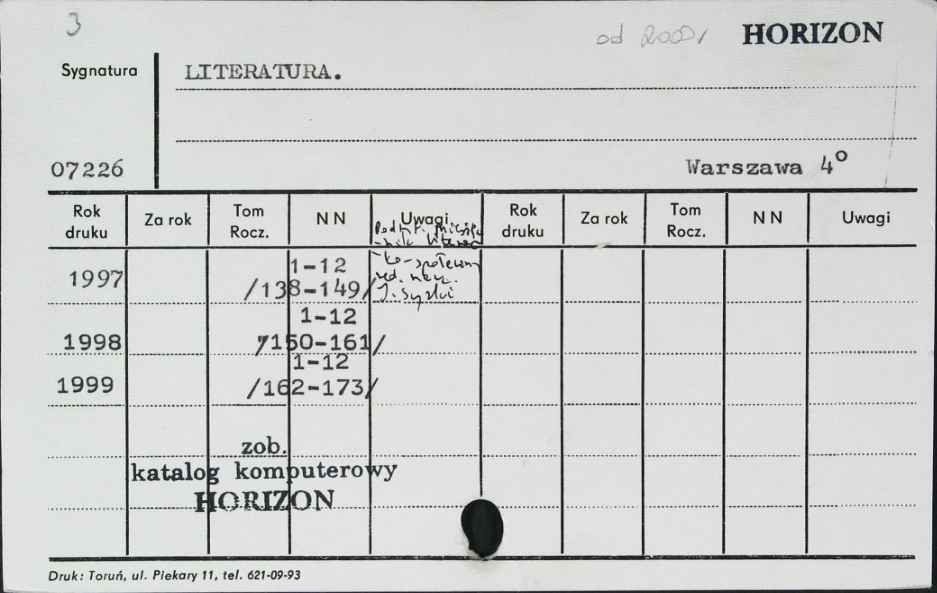 3
od 2000r HORIZON
Sygnatura LITERATURA.
07226 Warszawa 4°
Rok druku Za rok Tom Rocz. NN Uwagi Rok druku Za rok Tom Rocz. NN Uwagi
Podtyt.
1997 1-12 -ko-społeczny
/138-149/ red. nacz.
J.
1-12
1998 /150-161/
1-12
1999 /162-173/
zob.
katalog komputerowy
HORIZON
Druk: Toruń, ul. Piekary 11, tel. 621-09-93